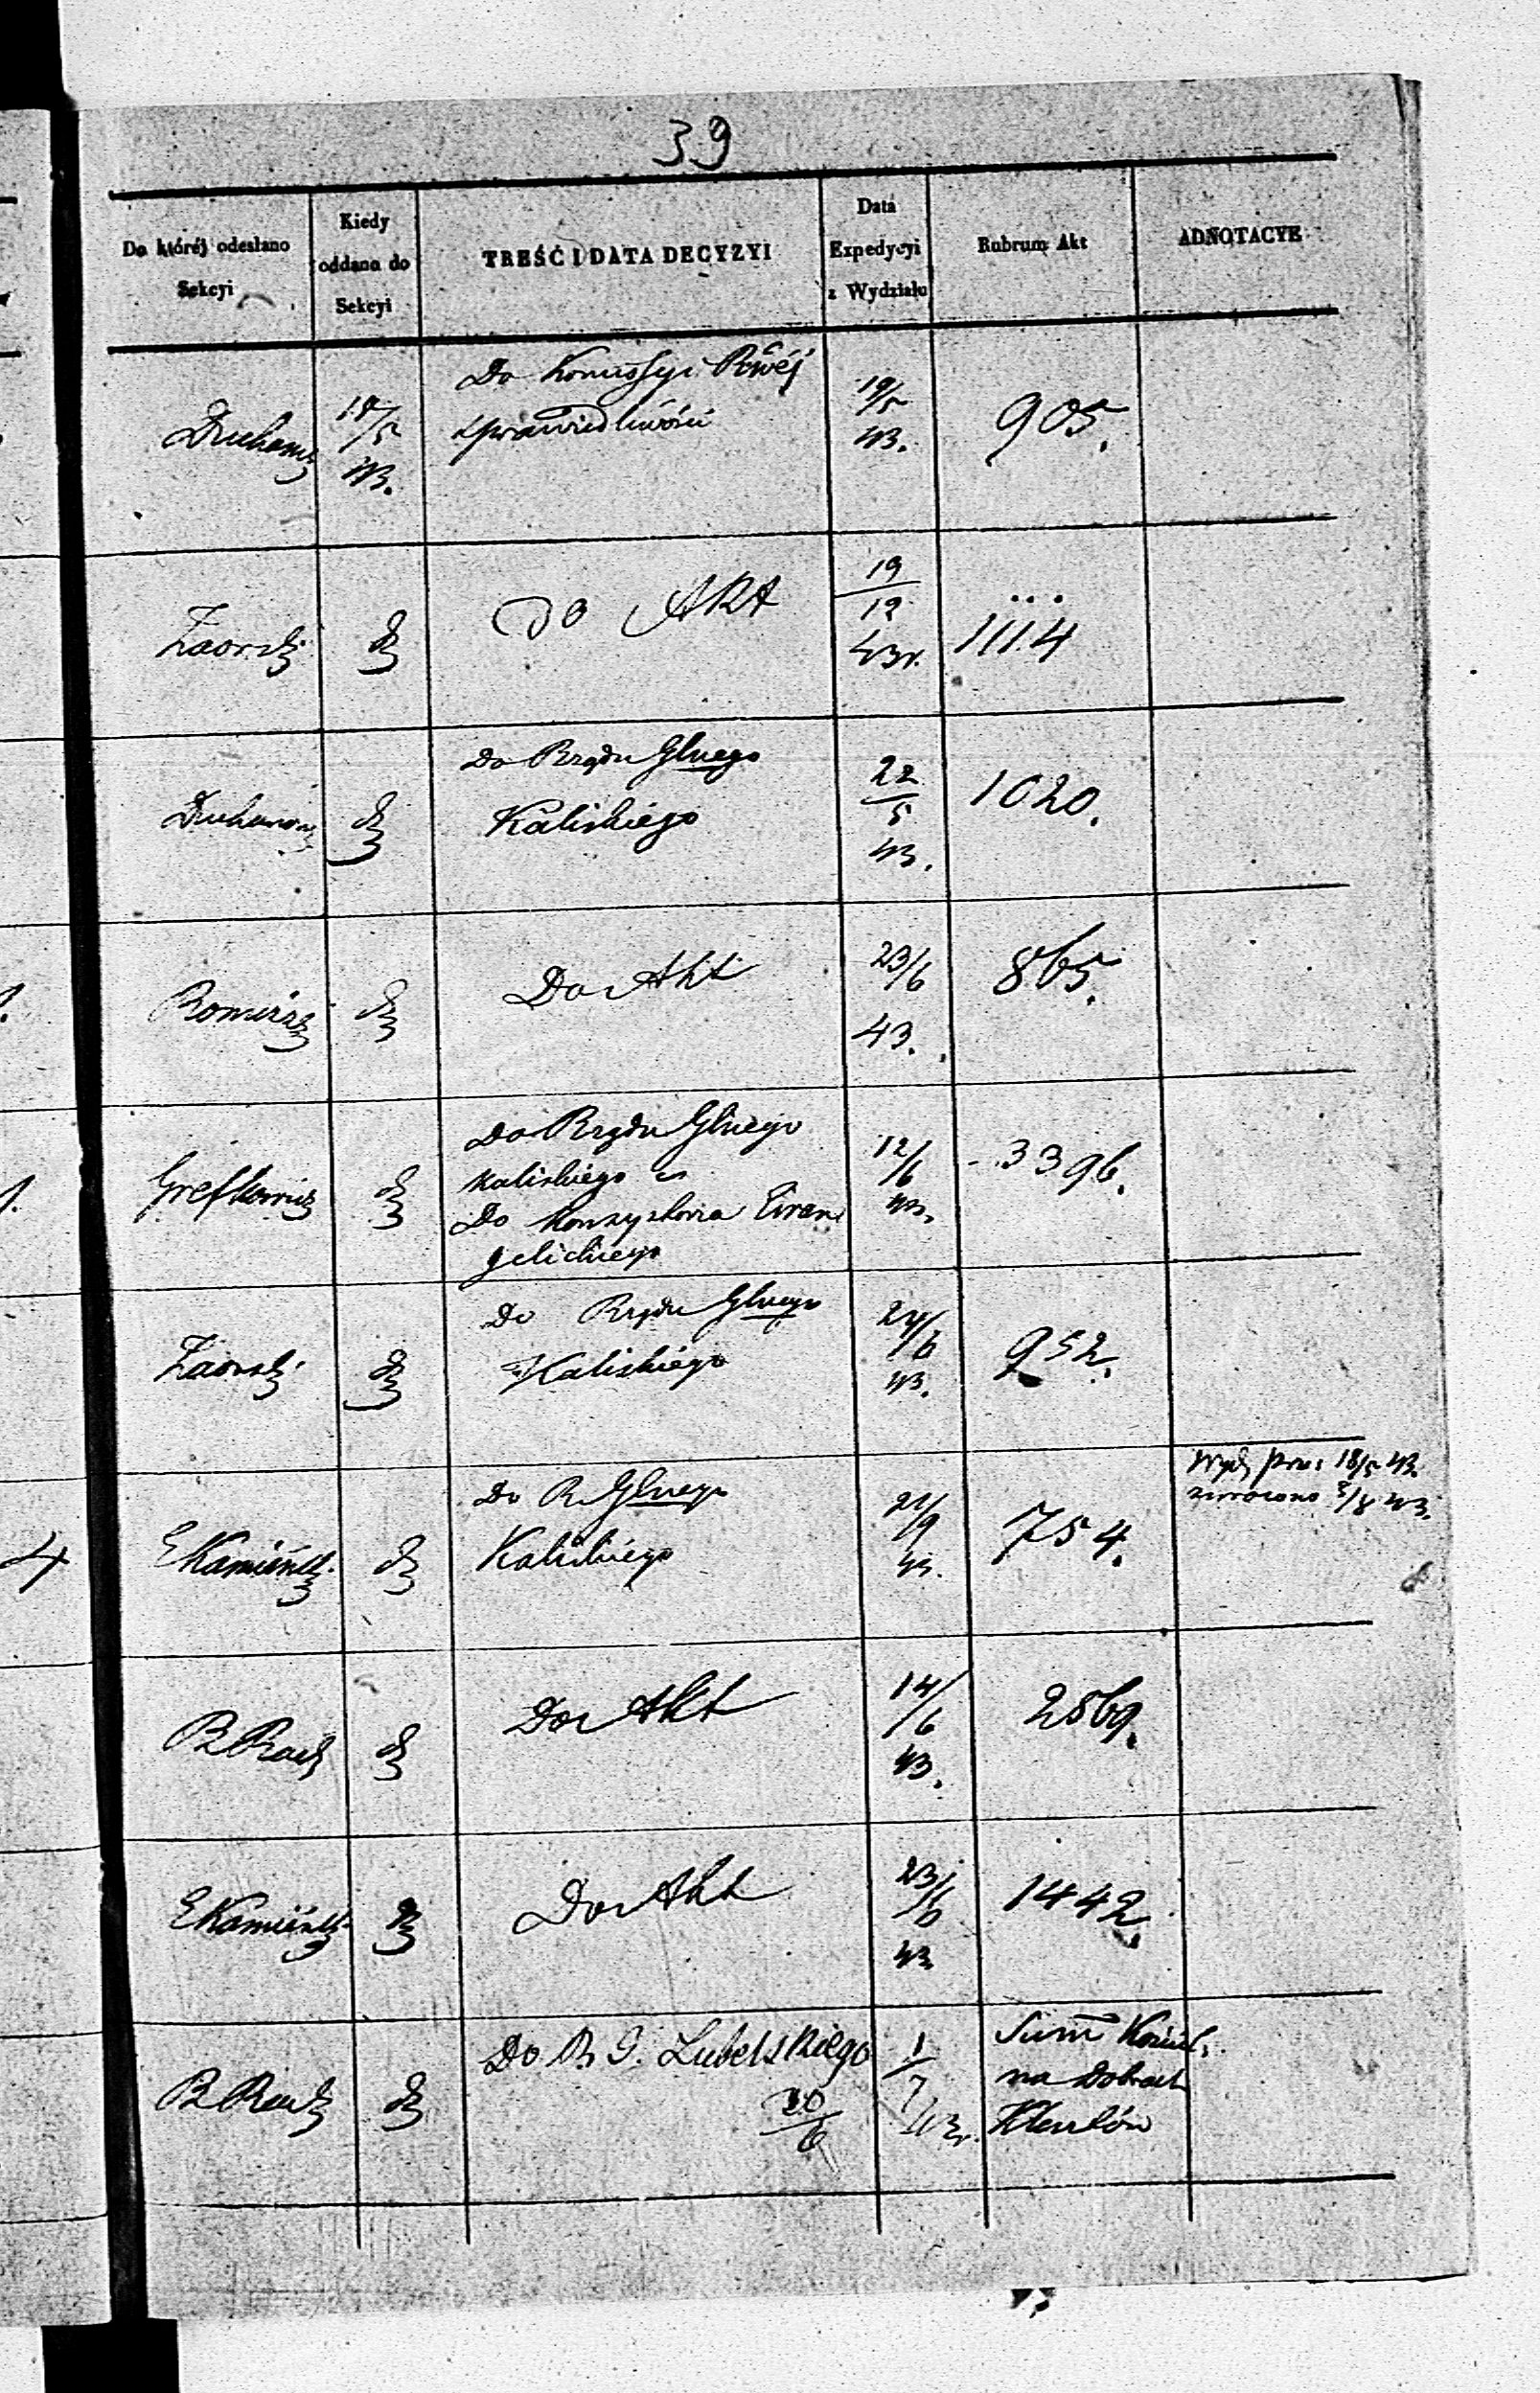 39
Do któréj odesłano
Sekcyi
Kiedy
oddano do
Sekcyi
TREŚĆ I DATA DECYZYI
Data
Expedycyi
z Wydziału
Rubrum Akt
ADNOTACYE
18/5
43.
Do Komissyi
Sprawiedliwości
19/5
43.
905.
Zaorski
Do Akt
19
12
43r.
1114
Do Rządu Glnego
Kaliskiego
22
5
43.
1020.
Do Akt
23/6
43.
865.
Do Rządu Glnego
Kaliskiego
Do Konsystorza Ewan
gelickiego
12/6
43.
3396.
Zaorski
Do Rządu Glnego
Kaliskiego
24/6
43.
952.
4
EKamieńsk
Do R Glnego
Kaliskiego
21/9
43.
754.
18/5 43.
zwrócono 5/8 43.
Do Akt
14/6
43.
2569.
EKamieńsk
Do Akt
23/6
43
1442
Do R G. Lubelskiego
20
6
1
7
43r.
Sum Kościel.
na Dobrach